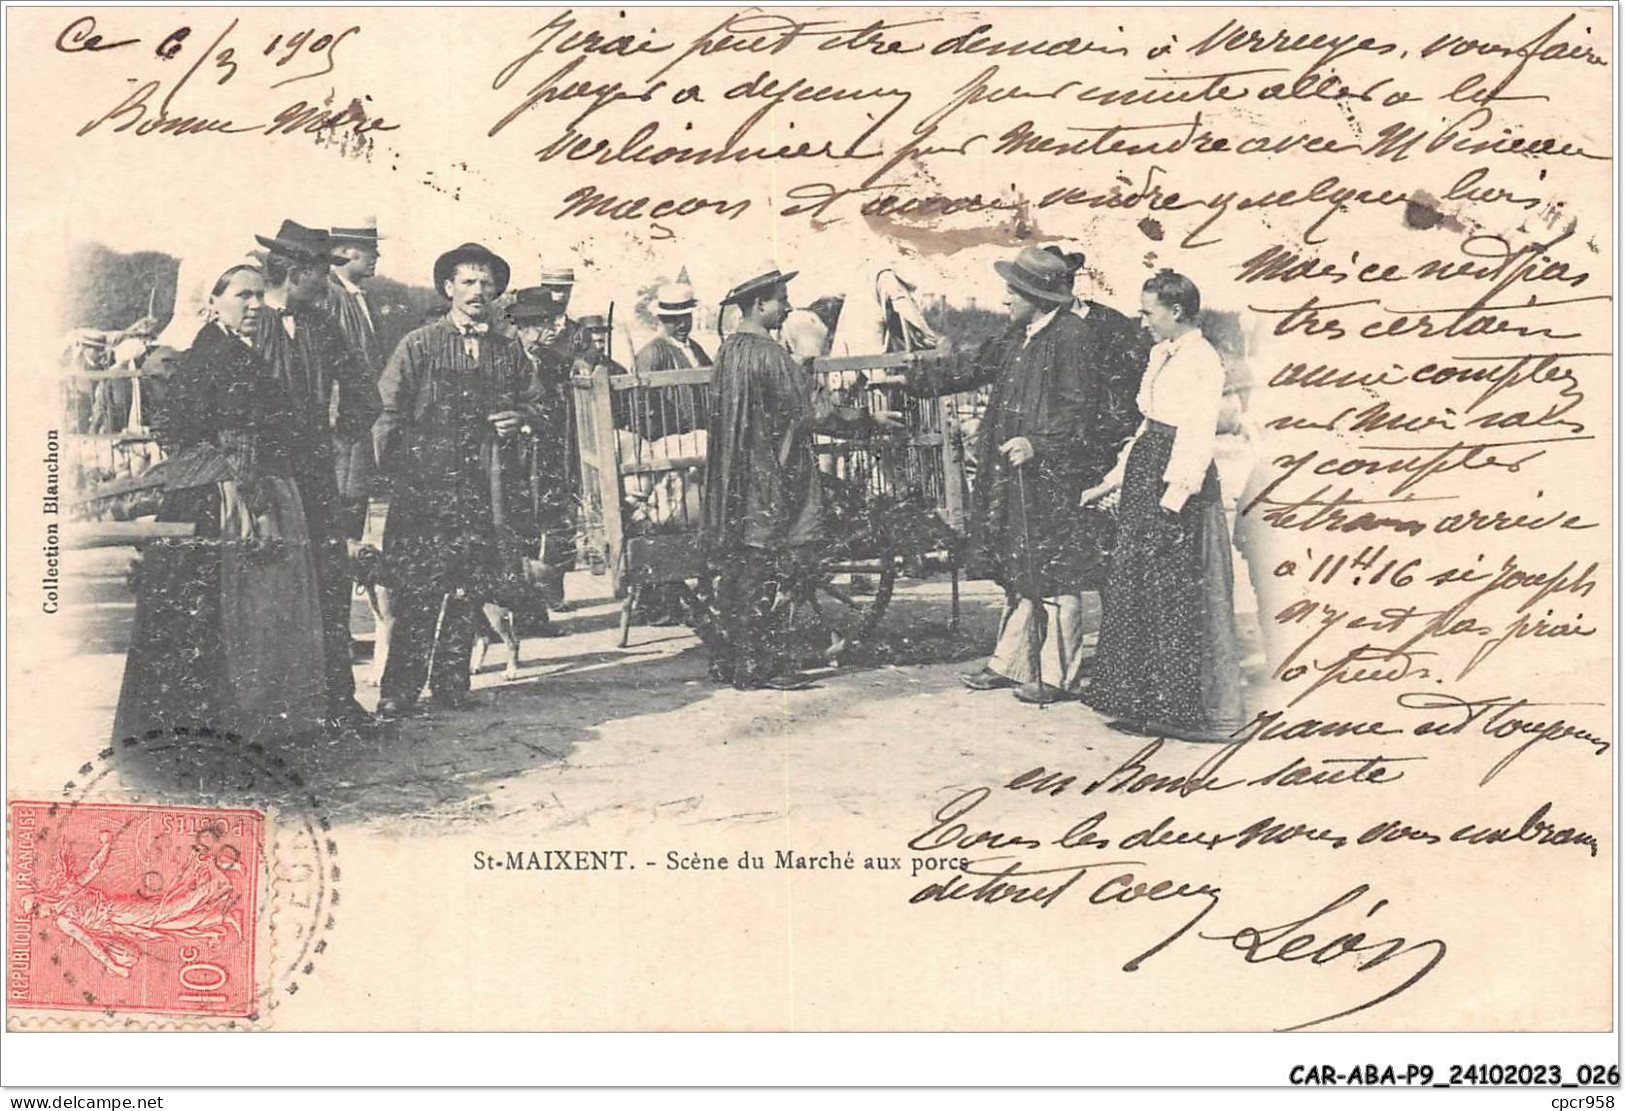 Ce 6/3 1905
Bonne Mère
J'irai peut etre demain à Verruyes, vous faire
payer a dejeuner pour ensuite aller a la
pour m'entendre avec M Pineau
maçon et aussi vendre quelques bois.
Mais ce n'est pas
tres certain
aussi comptez
sur moi sans
y compter
le train arrive
à 11H.16 si Joseph
n'y est pas j'irai
à pieds.
Jeanne est toujours
en Bonne sante
Tous les deux nous vous embrassons
de tout coeur
Léon
Collection Blauchon
St-MAIXENT. - Scène du Marché aux porcs
REPUBLIQUE FRANÇAISE
POSTES
10c
CAR-ABA-P9_24102023_026
cpcr958